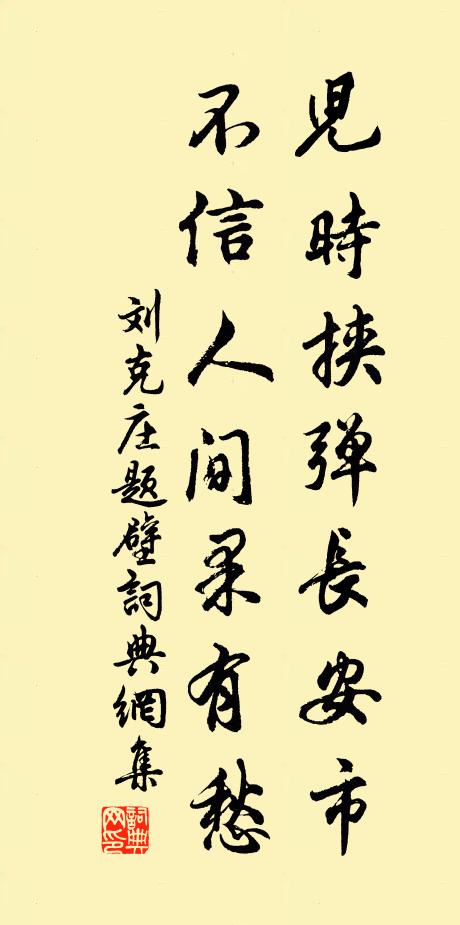 兒時挾弾長安市
不信人间果有愁
刘克庄题壁詞典網集
詞典网印